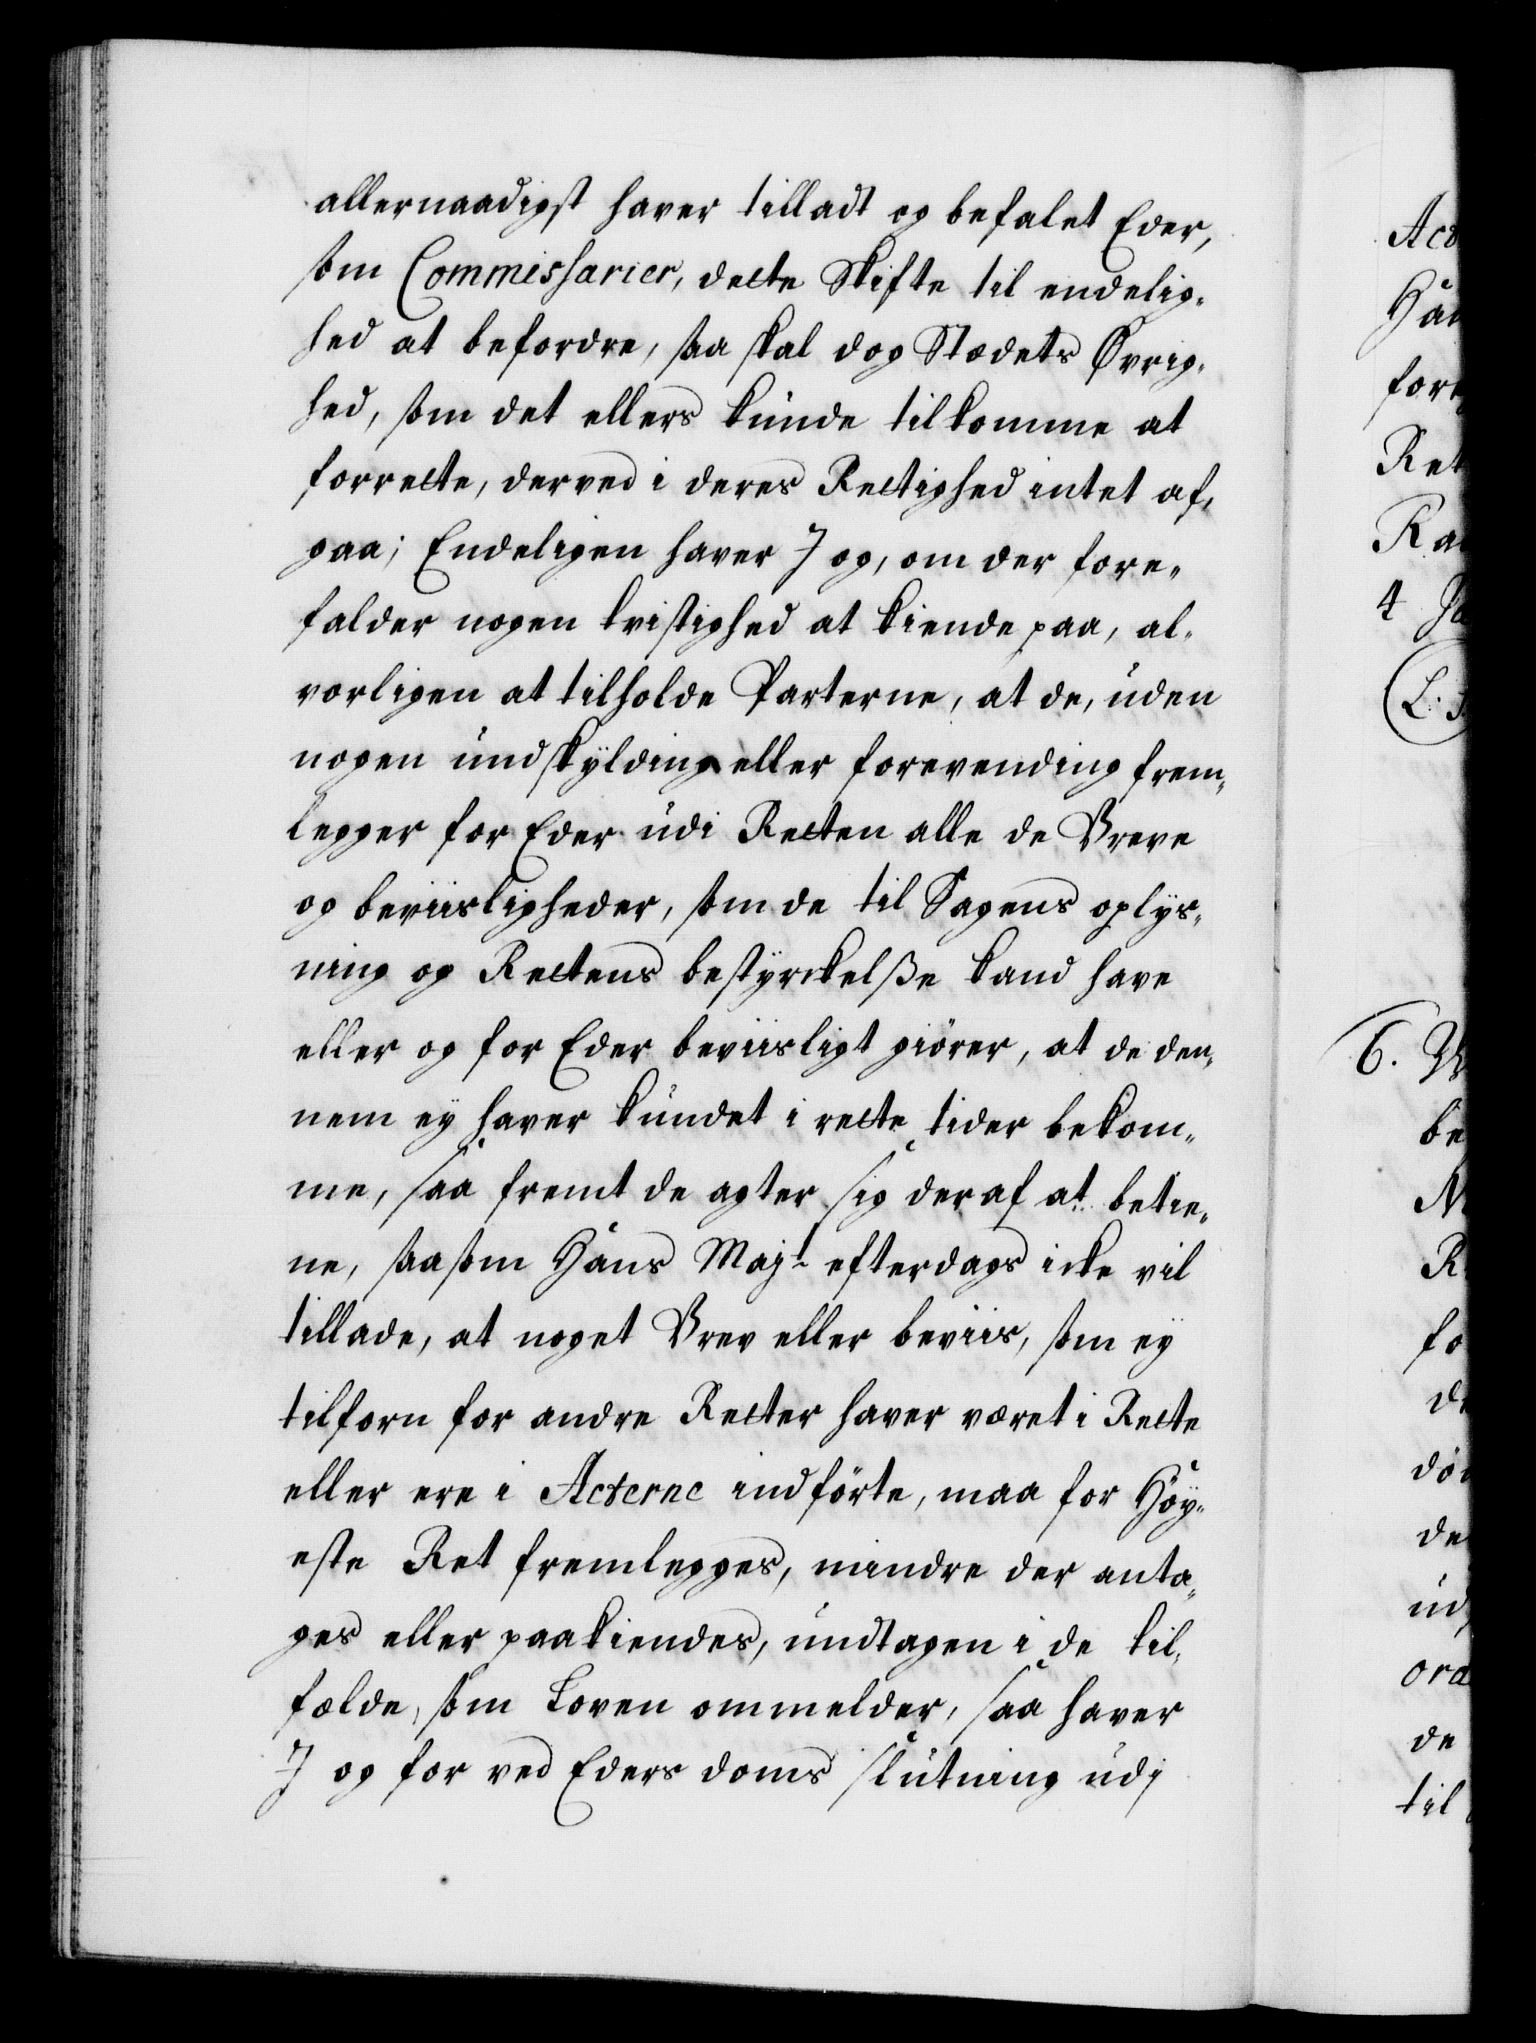 allernaadigst haver tilladt og befalet Eder,
som Commissarier, dette Skifte til endelig-
hed at befordre, saa skal dog Stædets Øvrig-
hed, som det ellers kunde tilkomme at
forrette, derved i deres Rettighed intet af-
gaa; Endeligen haver I og, om der fore-
falder nogen tvistighed at kiende paa, al-
vorligen at tilholde Parterne, at de, uden
nogen undskylding eller forevending frem-
legger for Eder udi Retten alle de Breve
og beviisligheder, som de til Sagens oplys-
ning og Rettens bestyrckelße kand have
eller og for Eder beviisligt giører, at de den-
nem ey haver kundet i rette tider bekom-
me, saa fremt de agter sig deraf at betie-
ne, saasom Hans Majt efterdags icke vil
tillade, at noget Brev eller beviis, som ey
tilforn for andre Retter haver været i Rette
eller ere i Acterne indførte, maa for Høy-
este Ret fremlegges, mindre der anta-
ges eller paakiendes, undtagen i de til-
fælde, som Loven ommelder, saa haver
I og for ved Eders doms slutning udj
Act
Han
for
Ret
Ra
4
L. S.
6. V
be
N
R
fo
de
dø
de
ud
ord
de
til